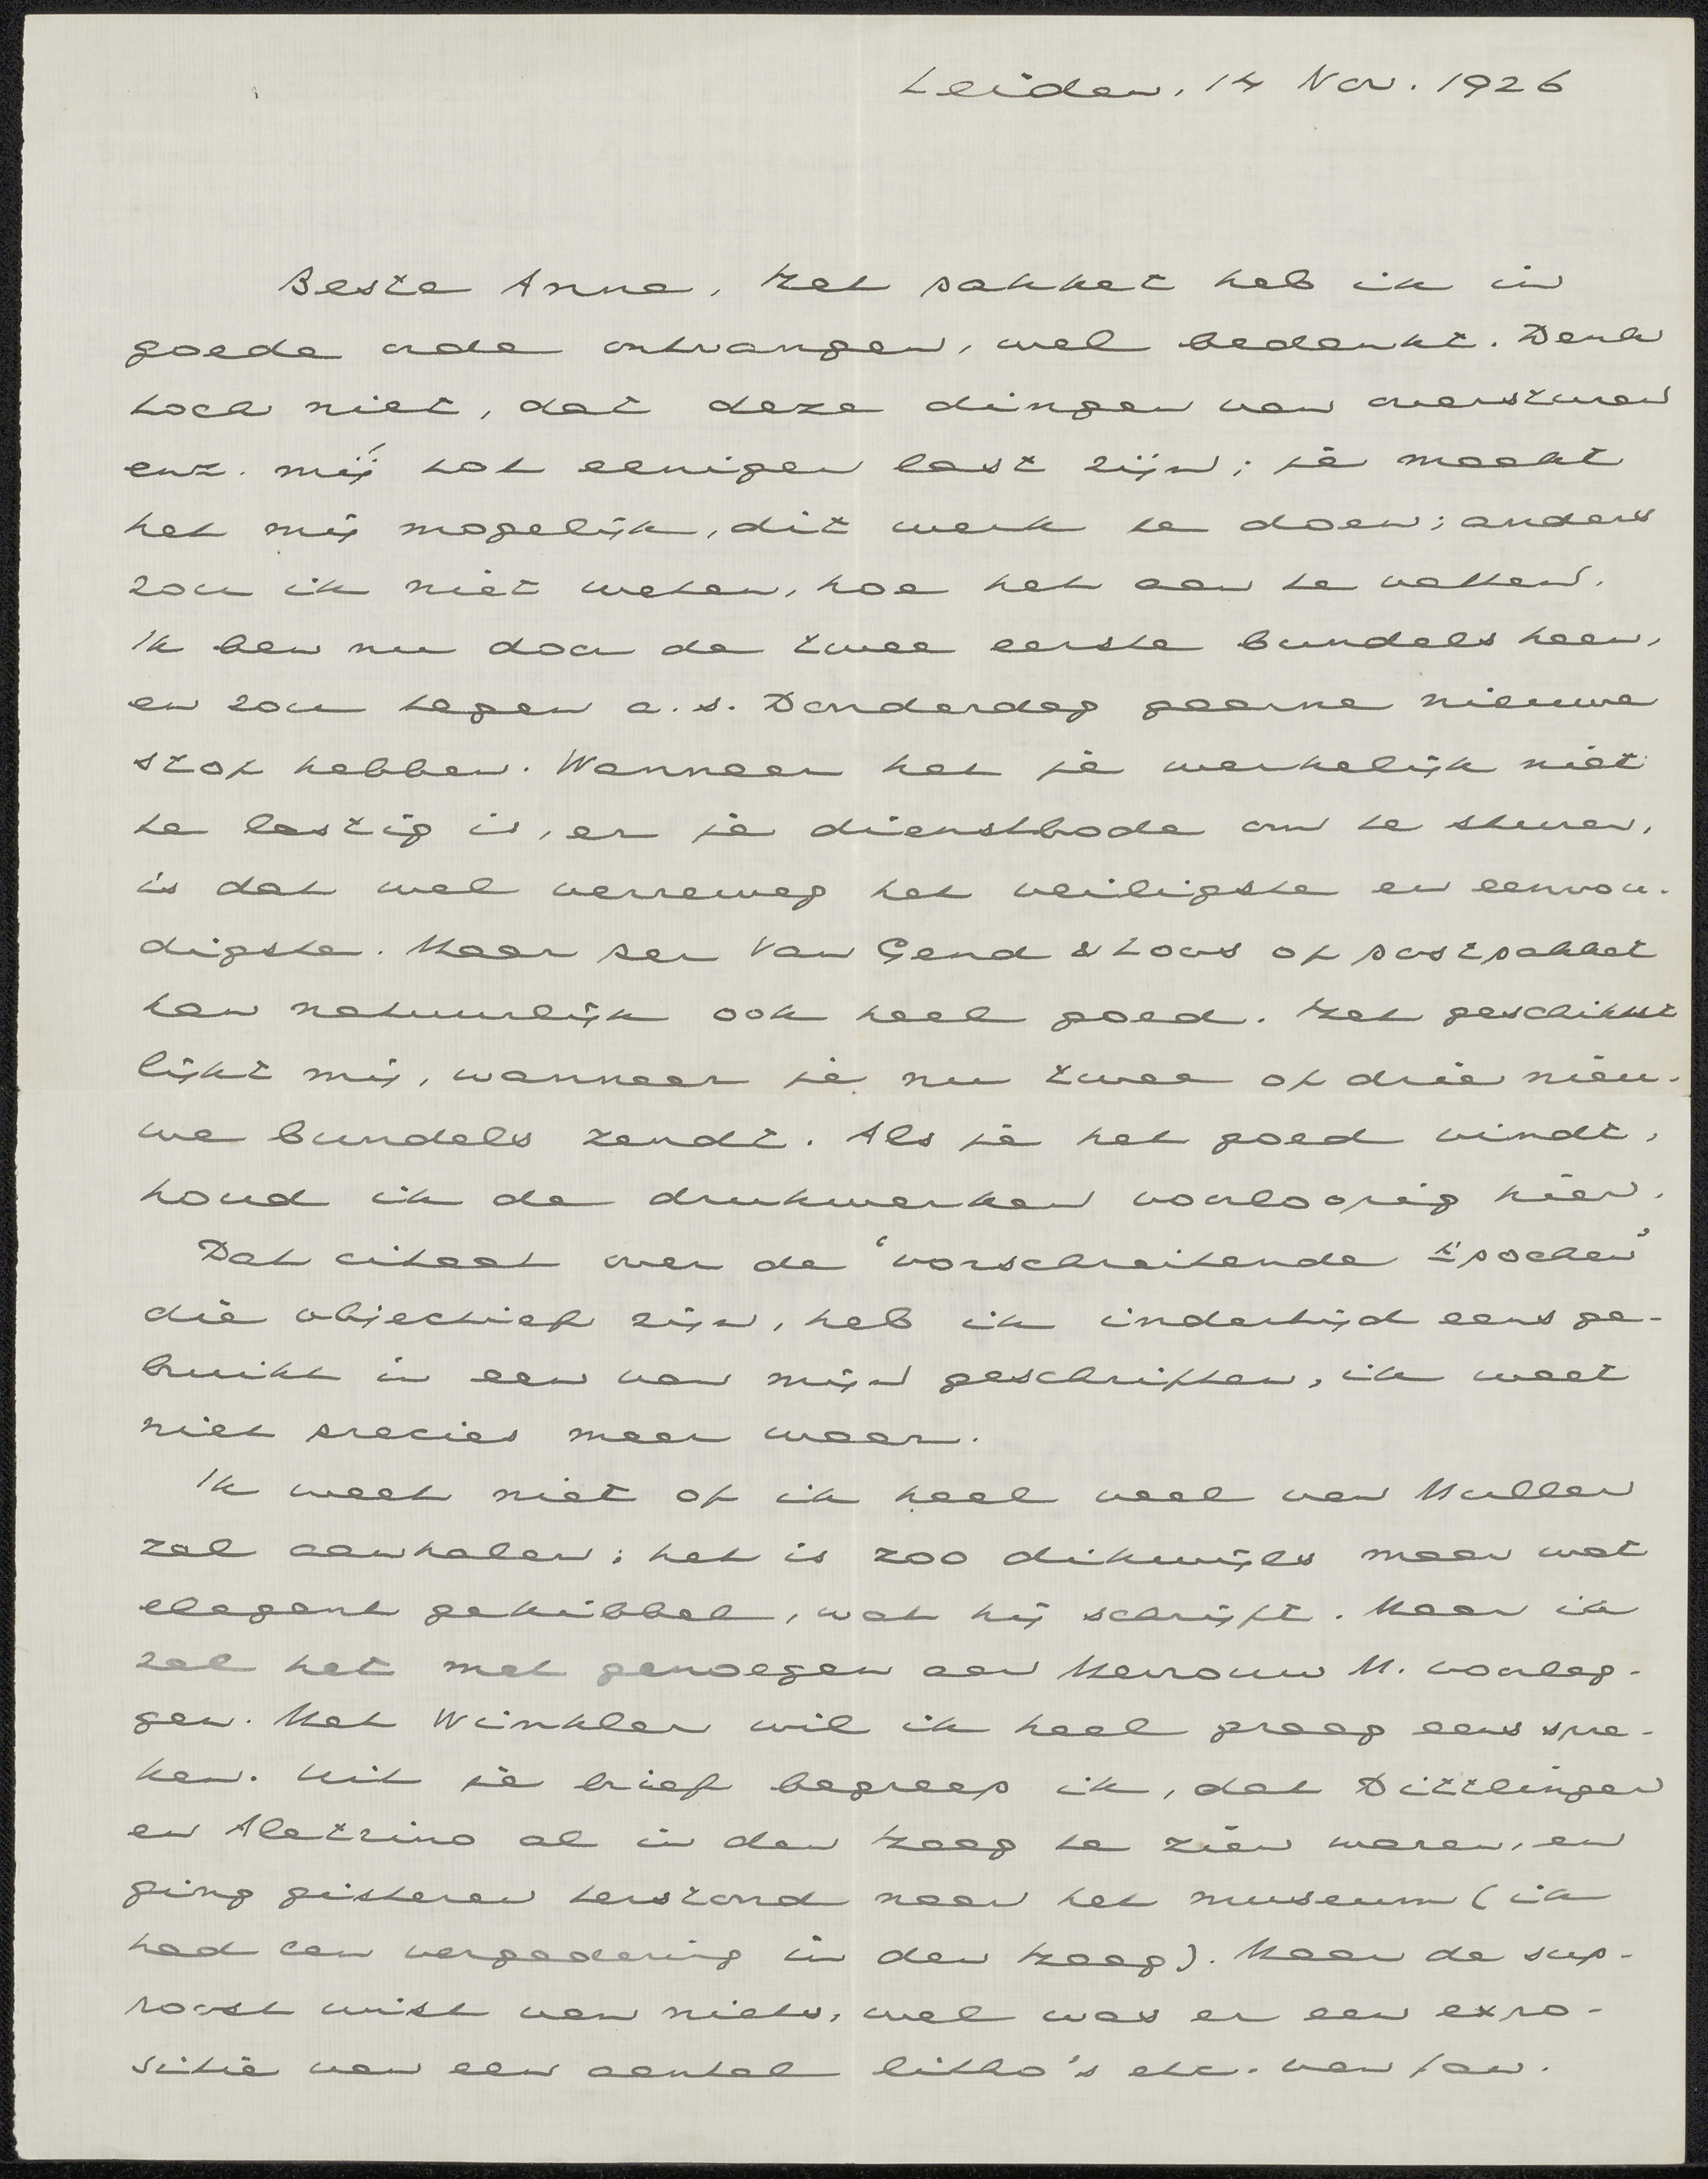 Leiden, 14 Nov. 1926
Beste Anna, Het pakket heb ik in
goede orde ontvangen, wel bedankt. Denk
toch niet, dat deze dingen van oversturen
enz. mij tot eenigen last zijn; je maakt
het mij mogelijk, dit werk te doen; anders
zou ik niet weten, hoe het aan te vatten.
Ik ben nu door de twee eerste bundels heen,
en zou tegen a.s. Donderdag gaarne nieuwe
stof hebben. Wanneer het je werkelijk niet
te lastig is, er je dienstbode om te sturen,
is dat wel verreweg het veiligste en eenvou-
digste. Maar per Van Gend & Loos of postpakket
kan natuurlijk ook heel goed. Het geschikst
lijkt mij, wanneer je nu twee of drie nieu-
we bundels zendt. Als je het goed vindt,
houd ik de drukwerken voorloopig hier.
Dat citaat over de 'vorschreitende Epochen'
die objectief zijn, heb ik indertijd eens ge-
bruikt in een van mijn geschriften, ik weet
niet precies meer waar.
Ik weet niet of ik heel veel van Muller
zal aanhalen; het is zoo dikwijls maar wat
elegant gekibbel, wat hij schrijft. Maar ik
zal het met genoegen aan Mevrouw M. voorleg-
gen. Met Winkler wil ik heel graag eens spre-
ken. Uit je brief begreep ik, dat Dittlinger
en Aletrino al in den Haag te zien waren, en
ging gisteren terstond naar het museum (ik
had een vergadering in den Haag). Maar de sup-
poost wist van niets, wel was er een expo-
sitie van een aantal litho's etc. van Jan.